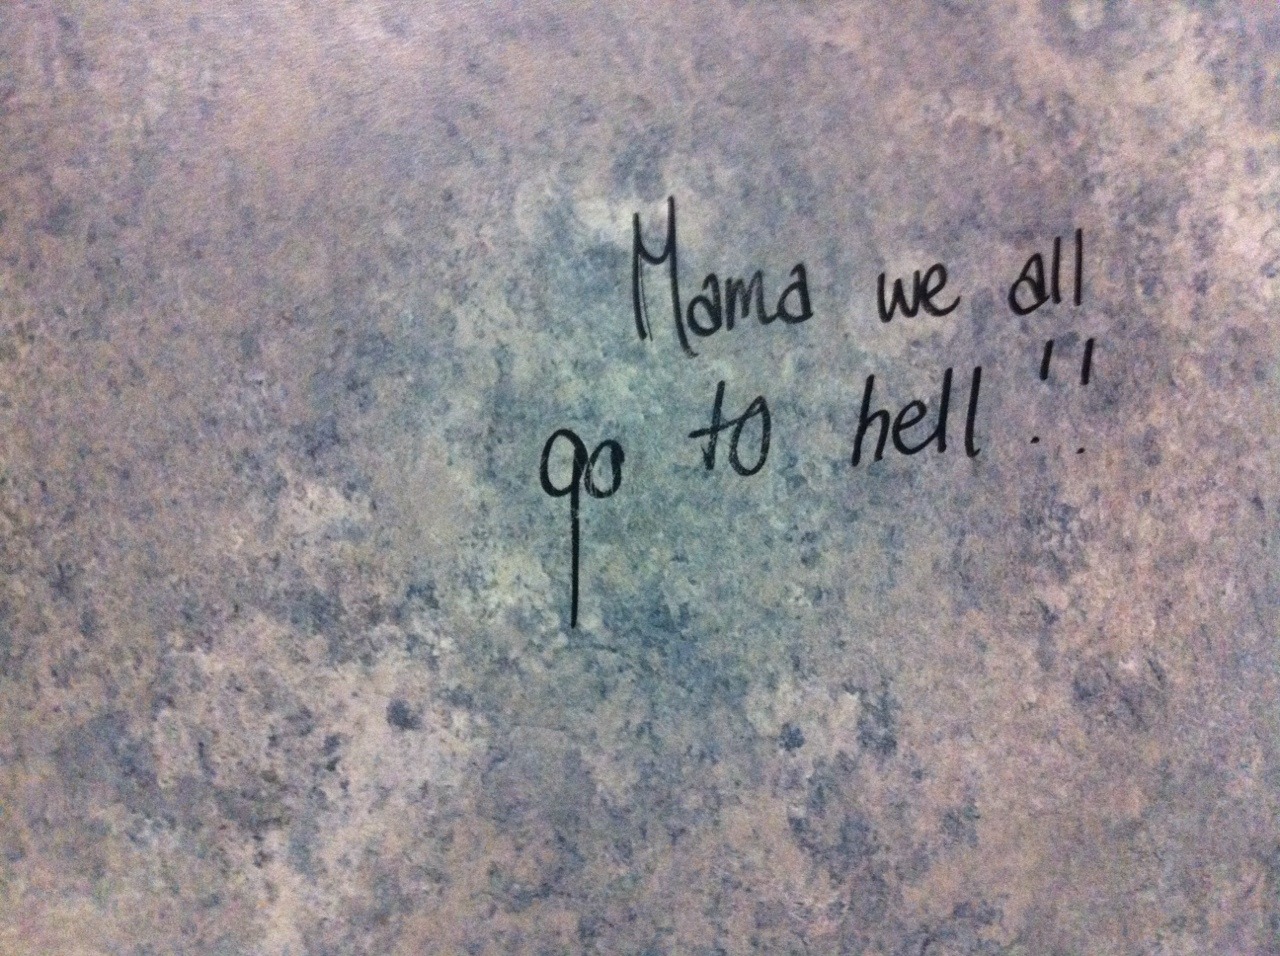 Mama we all
go to hell!!